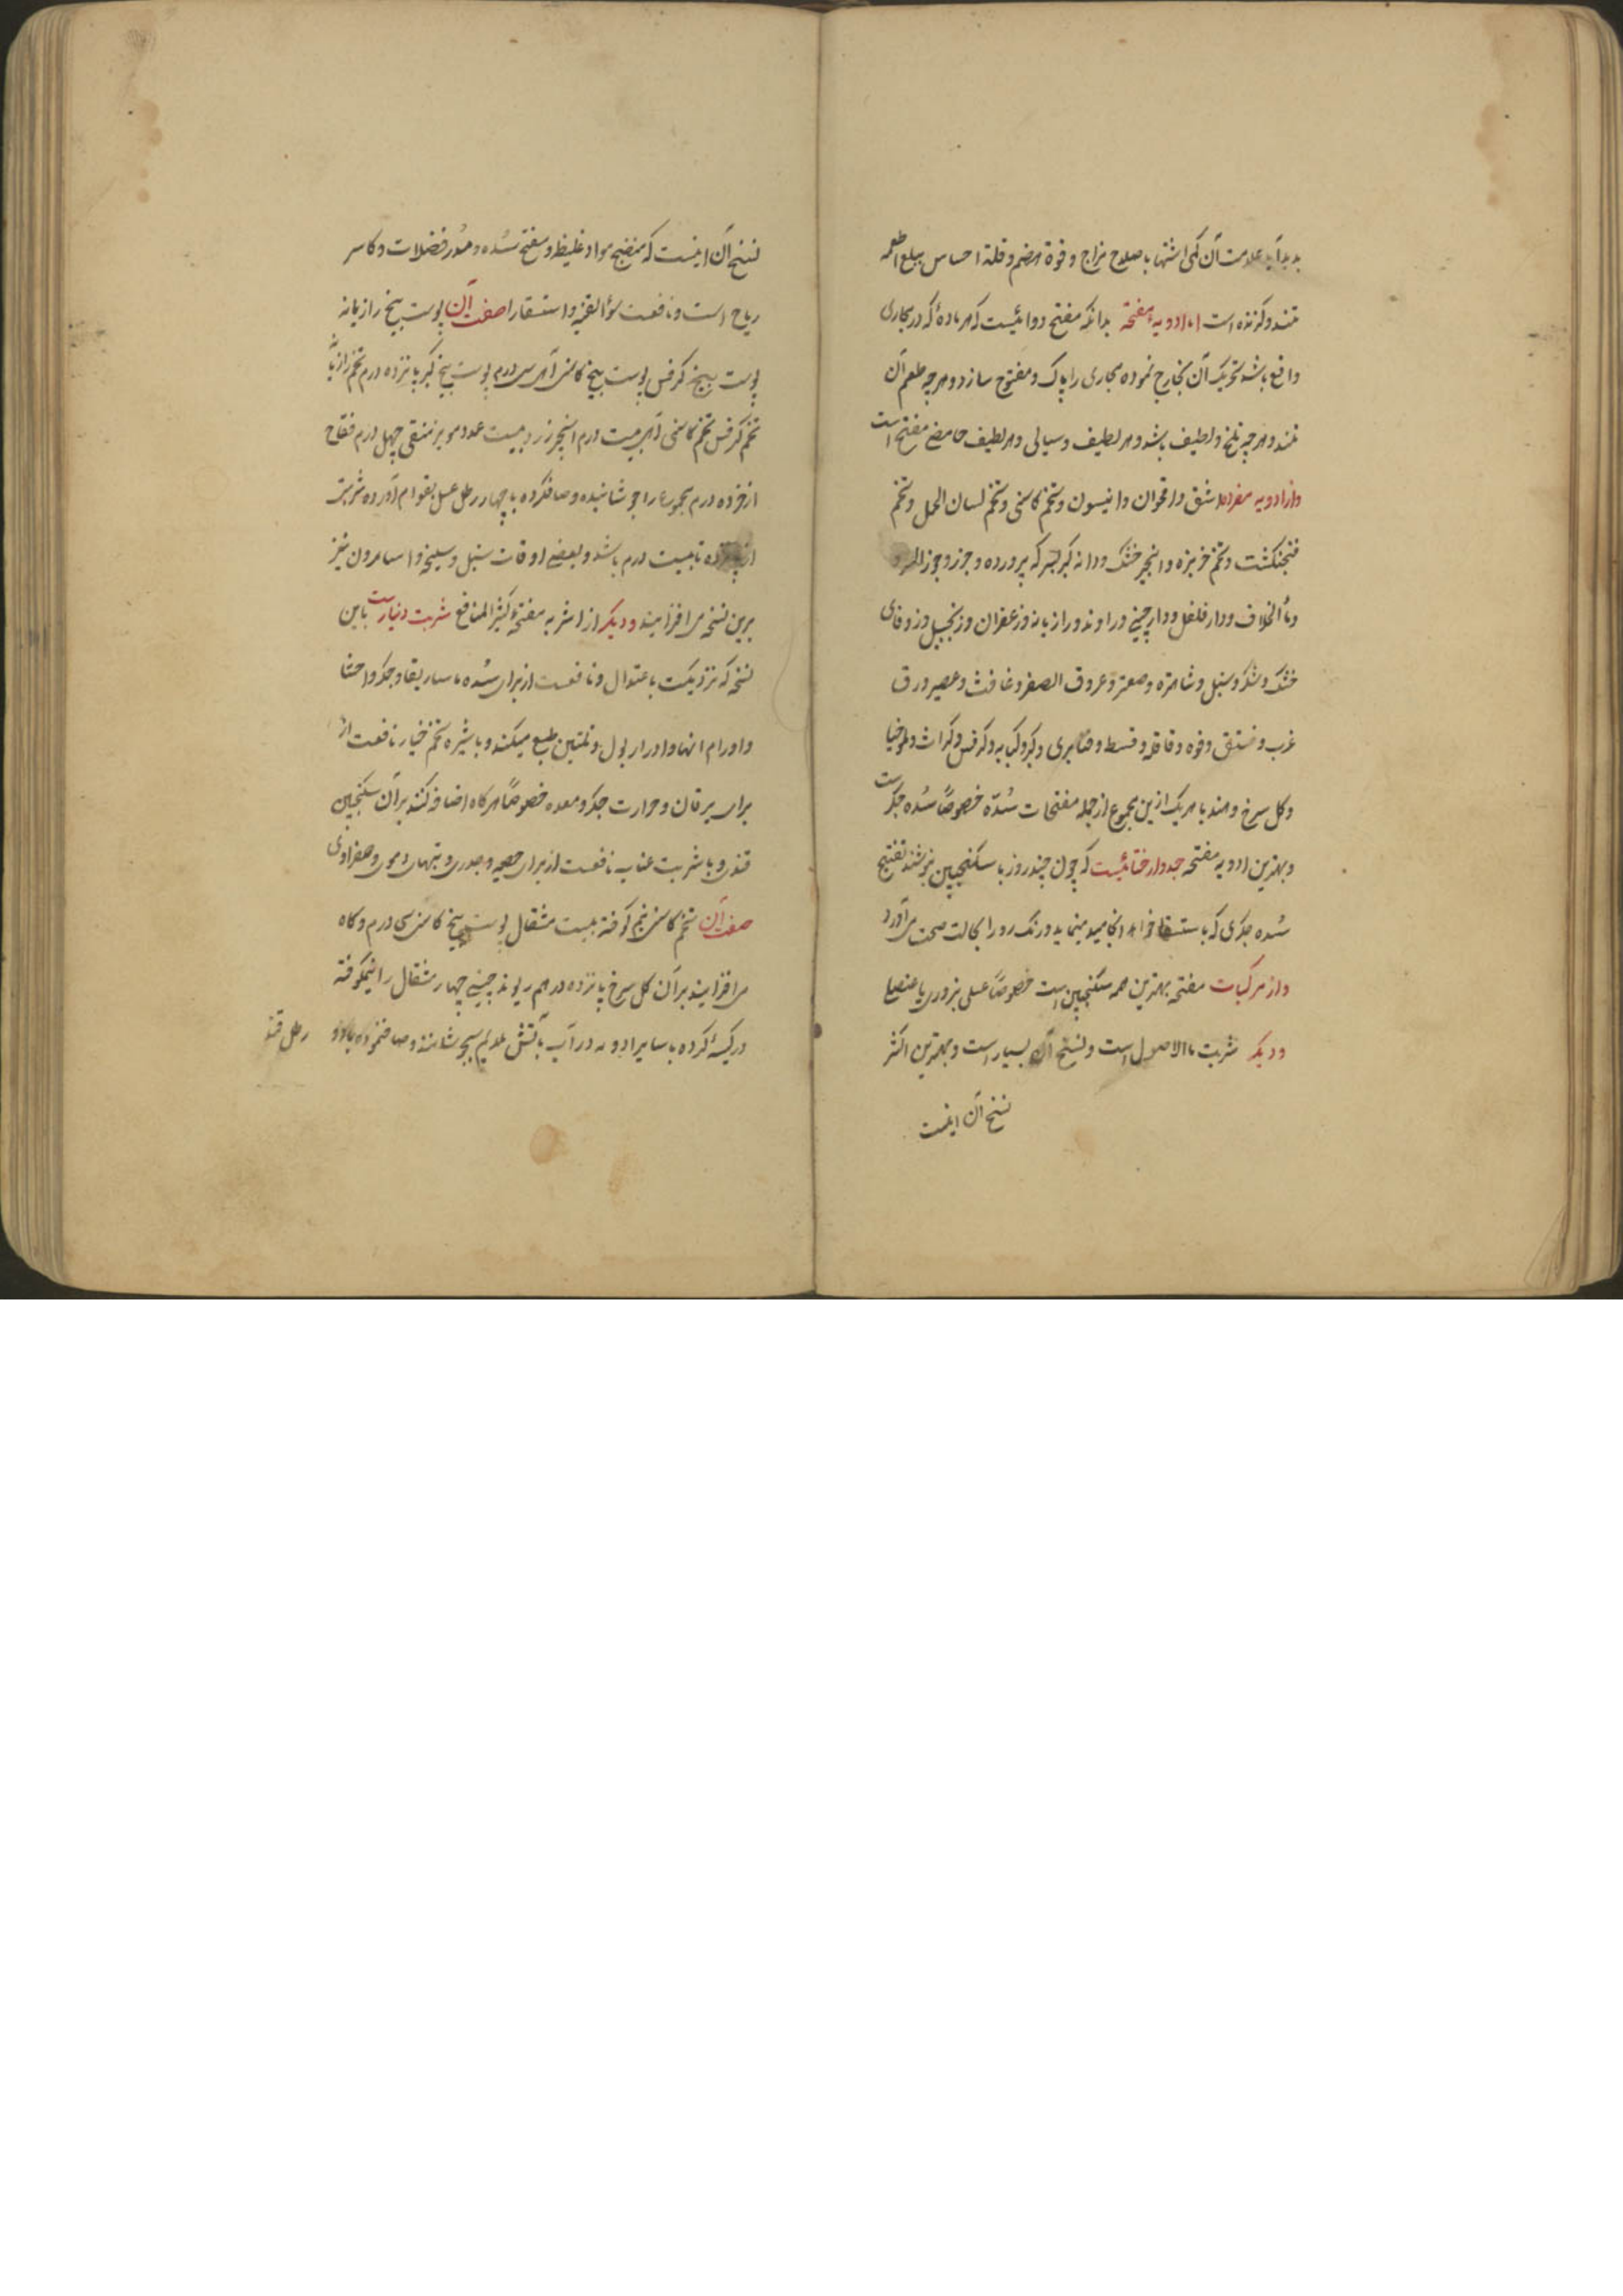 پدید آید علامت آن کمی اشتها با صلاح مزاج و قوة هضم و قلة احساس ببلع اطعمه
تند و کزنده است اما ادویه مفتحه بدانکه مفتح دوائیست که هر ماده که در مجاری
واقع باشد تحریک آن بخارج نموده مجاری را پاک و مفتوح سازد و هرچه طعم آن
تند و هرچه تلخ و لطیف باشد و هر لطیف و سیالی و هر لطیف حامضی مفتح است
و از ادویه مفرده اشق و اقحوان و انیسون و تخم کاسنی و تخم لسان الحمل و تخم
فنجنکشت و تخم خربزه و انجیر خشک و دانه کبر بسرکه پرورده و جوز و جوز
و ماء الخلاف و دارفلفل و دارچینی و راوند و رازیانه و زعفران و زنجبیل و زوفای
خشک و شکر و سنبل و شاهتره و صعتر و عروق الصفر و غافث و عصیر ورق
غرب و فستق و فوه و قاقله و قسط و قثاء بری و کبر و کبابه و کرفس و کراث و لوخیا
و کل سرخ و هندبا هر یک ازین مجموع از جمله مفتحات سُدّه خصوصاً سُده جکر است
و بهترین ادویه مفتحه جدوار ختائیست که چون چند روز با سکنجبین بنوشند تفتیح
سُده جکری که باستسقا خواهد انجامید مینماید و رنک رو را بحالت صحت می آورد
و از مرکبات مفتحه بهترین همه سکنجبین است خصوصاً عسلی بزوری یا عنصلی
و دیکر شربت ماء الاصول است و نسخ آن بسیار است و بهترین اکثر
نسخ آن اینست
نسخ آن اینست که منضج مواد غلیظ و مفتح سُده و مُدر فضلات و کاسر
ریاح است و نافعست سؤ القنیه و استسقا را صفت آن پوست بیخ رازیانه
پوست بیخ کرفس پوست بیخ کاسنی از هر یک سی درم پوست بیخ کبر پانزده درم تخم رازیانه
تخم کرفس تخم کاسنی از هر یک بیست درم انجیر زرد بیست عدد مویز منقی چهل درم فقاح
اذخر ده درم مجموع را جوشانیده و صاف کرده با چهار رطل عسل بقوام آورده شربت
از پانزده تا بیست درم باشد و بعضی اوقات سنبل و سلیخه و اسارون نیز
برین نسخه می افزایند و دیکر از اشربه مفتحه کثیر المنافع شربت دیناریست باین
نسخه که نزدیکست باعتدال و نافعست از برای سُده ماساریقا و جکر و احشا
و اورام انها و ادرار بول و تلیین طبع میکند و با شیره تخم خیار نافعست از
برای یرقان و حرارت جکر و معده خصوصاً هرکاه اضافه کنند بر آن سکنجبین
قندی و با شربت عناب نافعست از برای حصبه و جدری و تبهای دموی و صفراوی
صفت آن تخم کاسنی نیم کوفته بیست مثقال پوست بیخ کاسنی سی درم و کاه
می افزایند بر آن کل سرخ پانزده درهم ریوند چینی چهار مثقال را نیمکوفته
در کیسهٔ کرده با سایر ادویه در آب بآتش ملایم بجوشانند و صاف نموده با دو
رطل قند